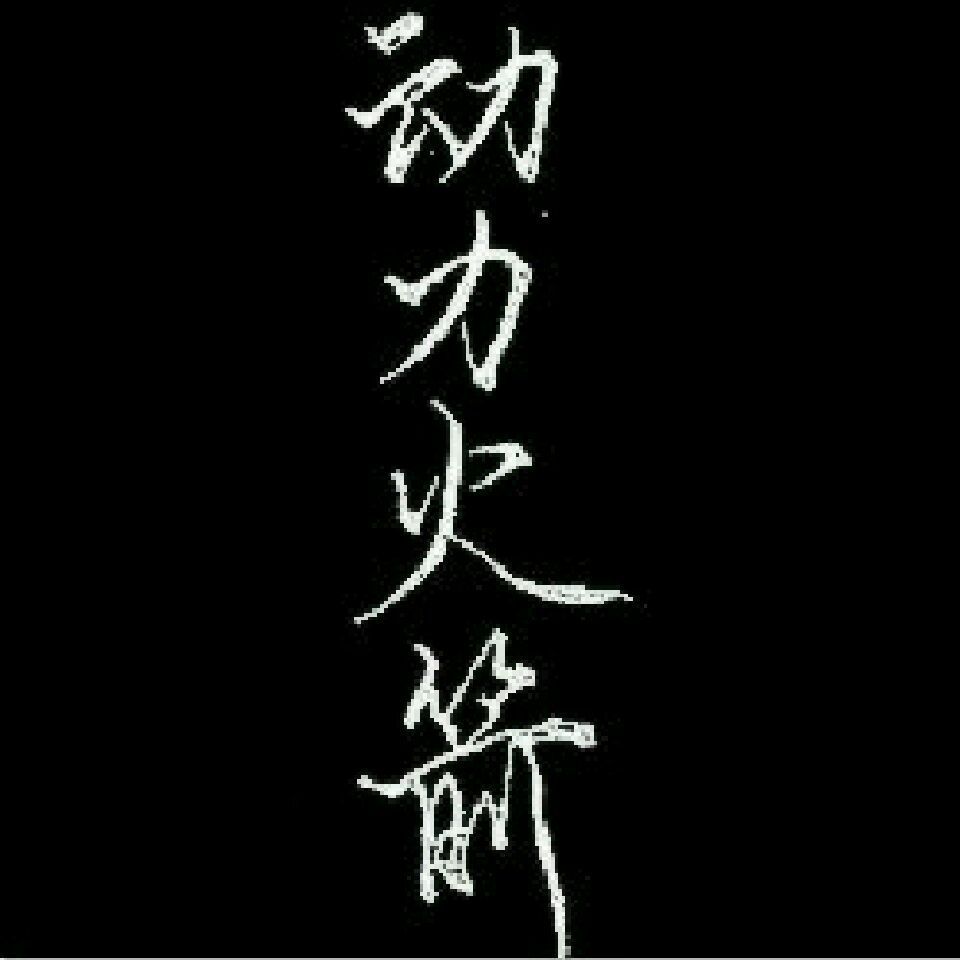 动力火箭